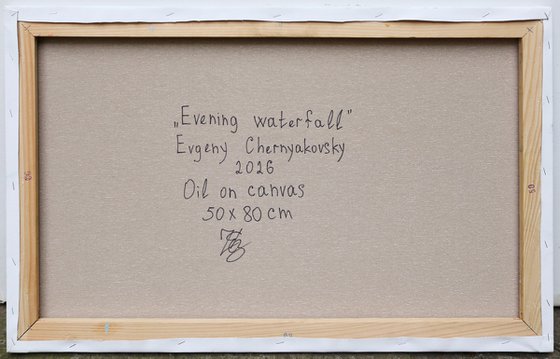 „Evening waterfall"
Evgeny Chernyakovsky
2026
Oil on canvas
50 x 80 cm